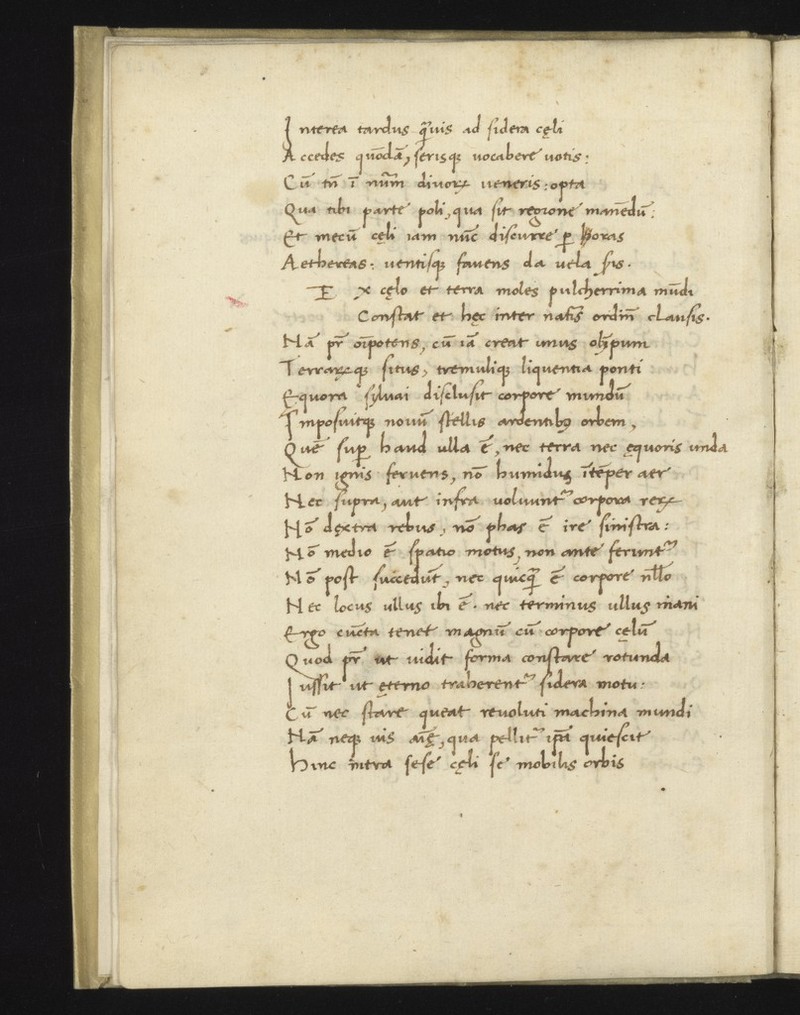 Interea tardus qᷓuis ad sidera cęli
Accedes quōdā, serisqꝫ uocabere uotis:
Cū tn̄ ī nūm diuoꝝ ueneris: opta
Qua tibi parte poli, qua sit regione manēdū:
Et mecū cęli iam nūc discurre ꝑ horas
Aethereas: uentisqꝫ fauens da uela sis.
Ex cęlo et terra moles pulcherrima mūdi
Constat et hęc inter natīs ordin̄ clausis.
Nā pr̄ oīpotens, cū iā creat unus olȳpum
Terraꝝqꝫ situs, tremuliqꝫ liquentia ponti
Equora syluai disclusit corpore mundū
Imposuitqꝫ nouū stellis ardentibꝰ orbem,
Quē suꝑ haud ulla ē, nec terra nec ęquoris unda
Non ignis feruens, nō humidus ītēper aer
Nec supra, aut infra uoluunt᷑ corpora reꝝ
Nō dextra rebus, nō phas ē ire sinistra:
Nō medio ē spatio motus, non ante ferunt᷑
Nō post succedūt, nec quicqᷓ ē corpore nl̄lo
Nec locus ullus ibi ē. nec terminus ullus inani
Ergo cūcta tenet magnū cū corpore cęlū
Quod pr̄ ut uidit forma constare rotunda
Iussit ut ęterno traherent᷑ sidera motu:
Cū nec stare queat reuoluti machina mundi
Nā neqꝫ uis aīę, qua pellit᷑ ip̄a quiescit
Hinc intra sese cęli se mobilis orbis